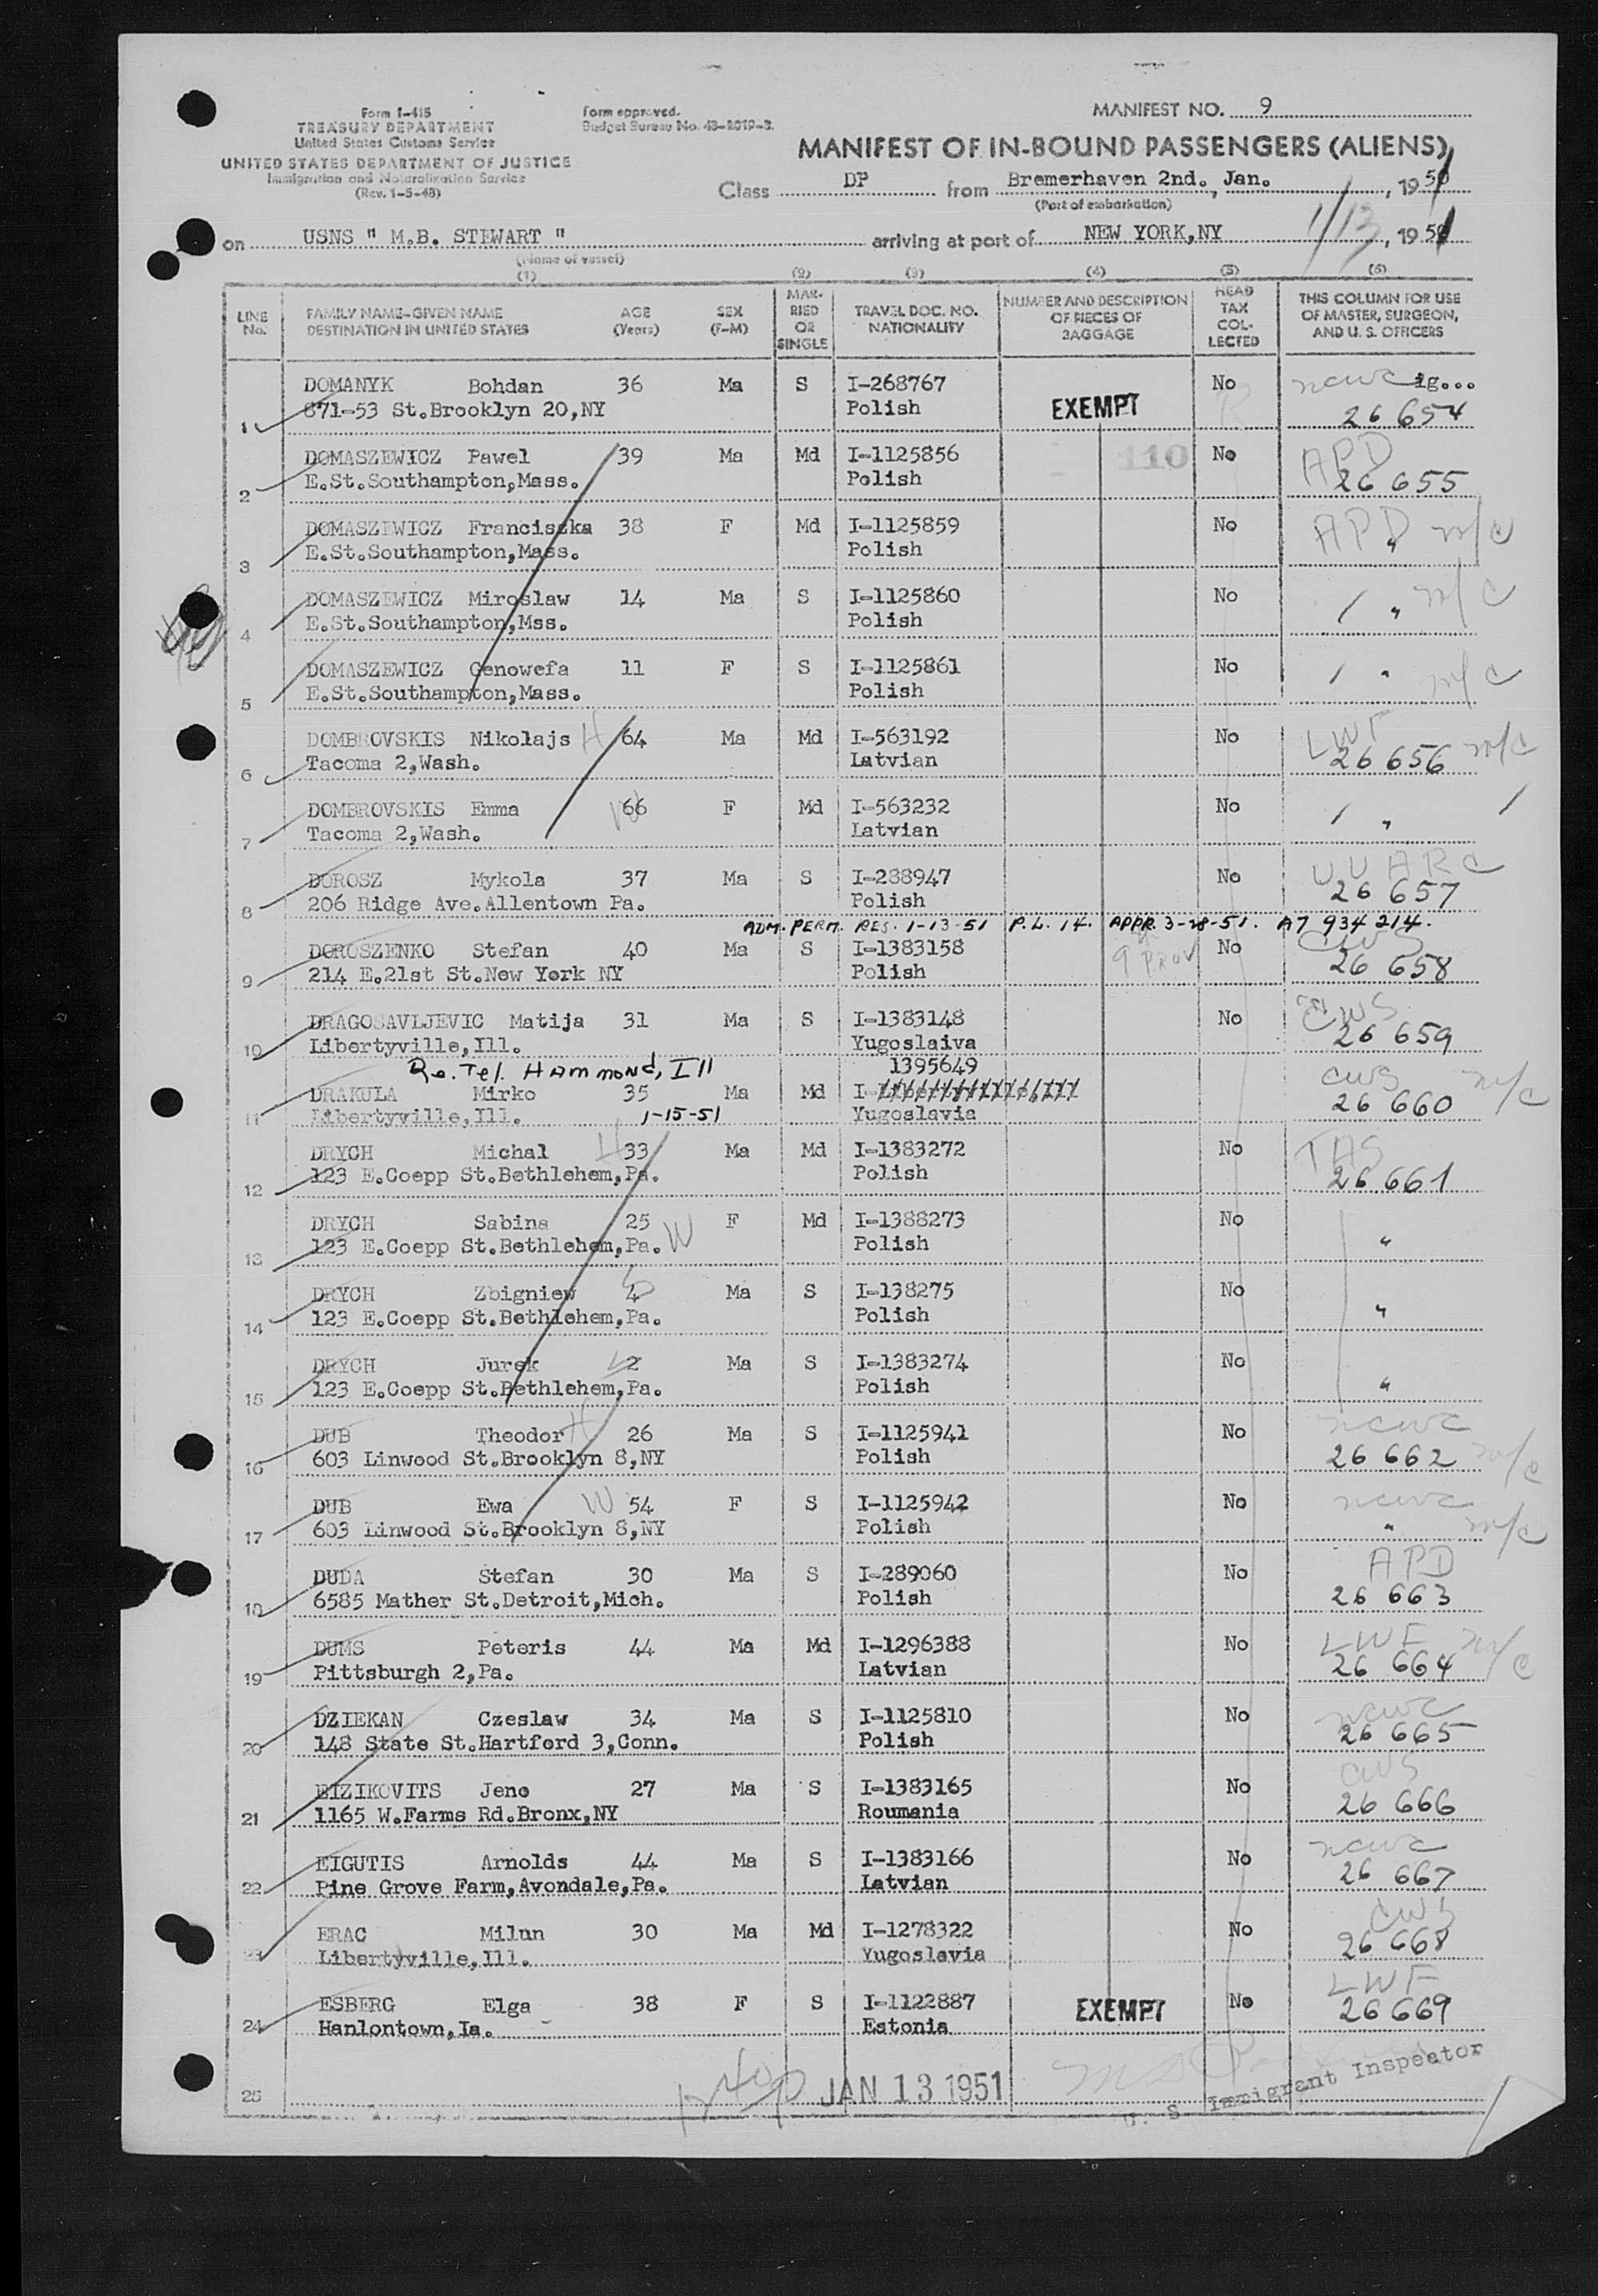 Form I-415
TREASURY DEPARTMENT
United States Customs Service
UNITED STATES DEPARTMENT OF JUSTICE
Immigration and Naturalization Service
(Rev. 1-5-48)
Form approved.
Budget Bureau No. 43-R019-3.
MANIFEST NO. 9
MANIFEST OF IN-BOUND PASSENGERS (ALIENS)
Class DP from Bremerhaven 2nd., Jan., 1951
(Port of embarkation)
on USNS " M.B. STEWART " arriving at port of NEW YORK,NY 1/13, 1951
(Name of vessel)
(1) (2) (3) (4) (5) (6)
LINE No. FAMILY NAME-GIVEN NAME DESTINATION IN UNITED STATES AGE (Years) SEX (F-M) MARRIED OR SINGLE TRAVEL DOC. NO. NATIONALITY NUMBER AND DESCRIPTION OF PIECES OF BAGGAGE HEAD TAX COLLECTED THIS COLUMN FOR USE OF MASTER, SURGEON, AND U. S. OFFICERS
1 DOMANYK Bohdan 36 Ma S I-268767 No ncwc
871-53 St.Brooklyn 20,NY Polish EXEMPT 26 654
2 DOMASZEWICZ Pawel 39 Ma Md I-1125856 110 No APD
E.St.Southampton,Mass. Polish 26 655
3 DOMASZEWICZ Franciszka 38 F Md I-1125859 No APD m/c
E.St.Southampton,Mass. Polish "
4 DOMASZEWICZ Miroslaw 14 Ma S I-1125860 No / " m/c
E.St.Southampton,Mss. Polish
5 DOMASZEWICZ Genowefa 11 F S I-1125861 No / " m/c
E.St.Southampton,Mass. Polish
6 DOMBROVSKIS Nikolajs H 64 Ma Md I-563192 No LWF m/c
Tacoma 2,Wash. Latvian 26 656
7 DOMBROVSKIS Emma W 66 F Md I-563232 No / " /
Tacoma 2,Wash. Latvian
8 DOROSZ Mykola 37 Ma S I-288947 No UUARC
206 Ridge Ave.Allentown Pa. Polish 26 657
ADM. PERM. RES. 1-13-51 P.L. 14. APPR. 3-28-51. A7 934 214.
9 DOROSZENKO Stefan 40 Ma S I-1383158 No CWS
214 E.21st St.New York NY Polish 26 658
10 DRAGOSAVLJEVIC Matija 31 Ma S I-1383148 No CWS
Libertyville,Ill. Yugoslaiva 26 659
Re. Tel. Hammond, Ill 1395649
11 DRAKULA Mirko 35 Ma Md I- CWS m/c
Libertyville,Ill. 1-15-51 Yugoslavia 26 660
12 DRYCH Michal H 33 Ma Md I-1383272 No TAS
123 E.Coepp St.Bethlehem,Pa. Polish 26 661
13 DRYCH Sabina 25 F Md I-1388273 No
123 E.Coepp St.Bethlehem,Pa. W Polish "
14 DRYCH Zbigniew 4 Ma S I-138275 No
123 E.Coepp St.Bethlehem,Pa. Polish "
15 DRYCH Jurek 2 Ma S I-1383274 No
123 E.Coepp St.Bethlehem,Pa. Polish "
16 DUB Theodor H 26 Ma S I-1125941 No ncwc
603 Linwood St.Brooklyn 8,NY Polish 26 662 m/c
17 DUB Ewa W 54 F S I-1125942 No ncwc
603 Linwood St.Brooklyn 8,NY Polish " m/c
18 DUDA Stefan 30 Ma S I-289060 No APD
6585 Mather St.Detroit,Mich. Polish 26 663
19 DUMS Peteris 44 Ma Md I-1296388 No LWF m/c
Pittsburgh 2,Pa. Latvian 26 664
20 DZIEKAN Czeslaw 34 Ma S I-1125810 No ncwc
148 State St.Hartford 3,Conn. Polish 26 665
21 EIZIKOVITS Jeno 27 Ma S I-1383165 No CWS
1165 W.Farms Rd.Bronx,NY Roumania 26 666
22 EIGUTIS Arnolds 44 Ma S I-1383166 No ncwc
Pine Grove Farm,Avondale,Pa. Latvian 26 667
23 ERAC Milun 30 Ma Md I-1278322 No CWS
Libertyville,Ill. Yugoslavia 26 668
24 ESBERG Elga 38 F S I-1122887 EXEMPT No LWF
Hanlontown,Ia. Estonia 26 669
25 JAN 13 1951
U. S Immigrant Inspector